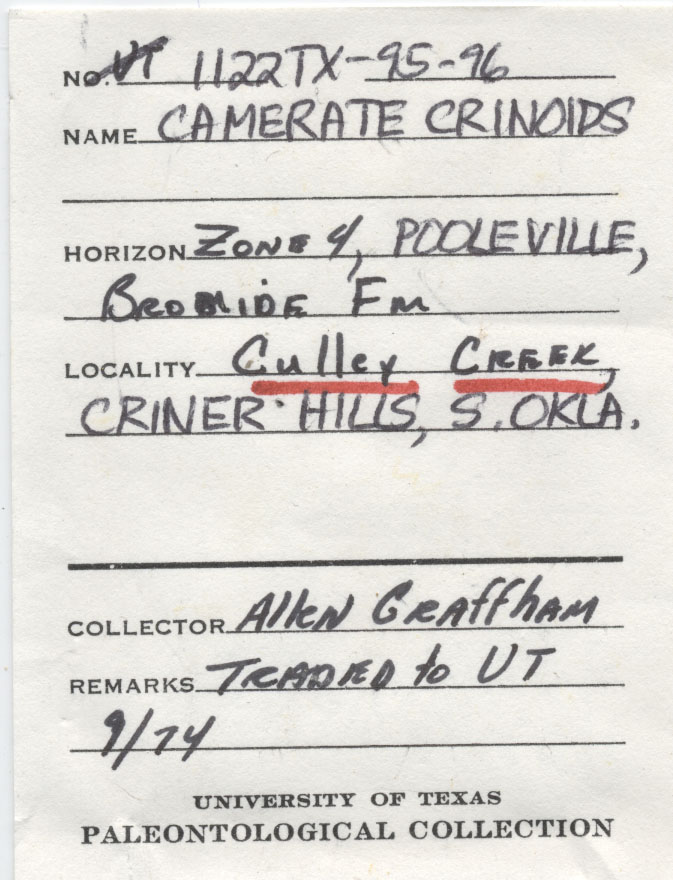 NO. UT 1122TX-95-96
NAME CAMERATE CRINOIDS
HORIZON ZONE 4, POOLEVILLE,
BROMIDE Fm
LOCALITY Culley CREEK,
CRINER HILLS, S. OKLA.
COLLECTOR Allen GRAffhAM
REMARKS TRADED to UT
9/74
UNIVERSITY OF TEXAS
PALEONTOLOGICAL COLLECTION